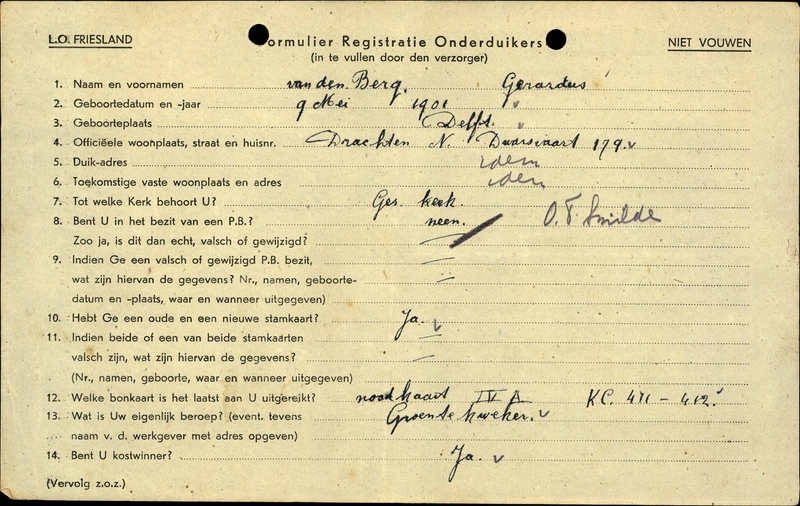 L.O. FRIESLAND
Formulier Registratie Onderduikers
NIET VOUWEN
(in te vullen door den verzorger)
1. Naam en voornamen van den Berg, Gerardus
2. Geboortedatum en -jaar 9 Mei 1901
3. Geboorteplaats Delft.
4. Officiëele woonplaats, straat en huisnr. Drachten N. Dwarsvaart 179
5. Duik-adres idem
6. Toekomstige vaste woonplaats en adres idem
7. Tot welke Kerk behoort U? Ger. kerk
8. Bent U in het bezit van een P.B.? neen. O.T. Smilde
Zoo ja, is dit dan echt, valsch of gewijzigd? —
9. Indien Ge een valsch of gewijzigd P.B. bezit, —
wat zijn hiervan de gegevens? Nr., namen, geboorte- —
datum en -plaats, waar en wanneer uitgegeven)
10. Hebt Ge een oude en een nieuwe stamkaart? Ja.
11. Indien beide of een van beide stamkaarten —
valsch zijn, wat zijn hiervan de gegevens? —
(Nr., namen, geboorte, waar en wanneer uitgegeven)
12. Welke bonkaart is het laatst aan U uitgereikt? noodkaart IV A KC. 411 - 412
13. Wat is Uw eigenlijk beroep? (event. tevens Groentekweker.
naam v. d. werkgever met adres opgeven)
14. Bent U kostwinner? Ja.
(Vervolg z.o.z.)